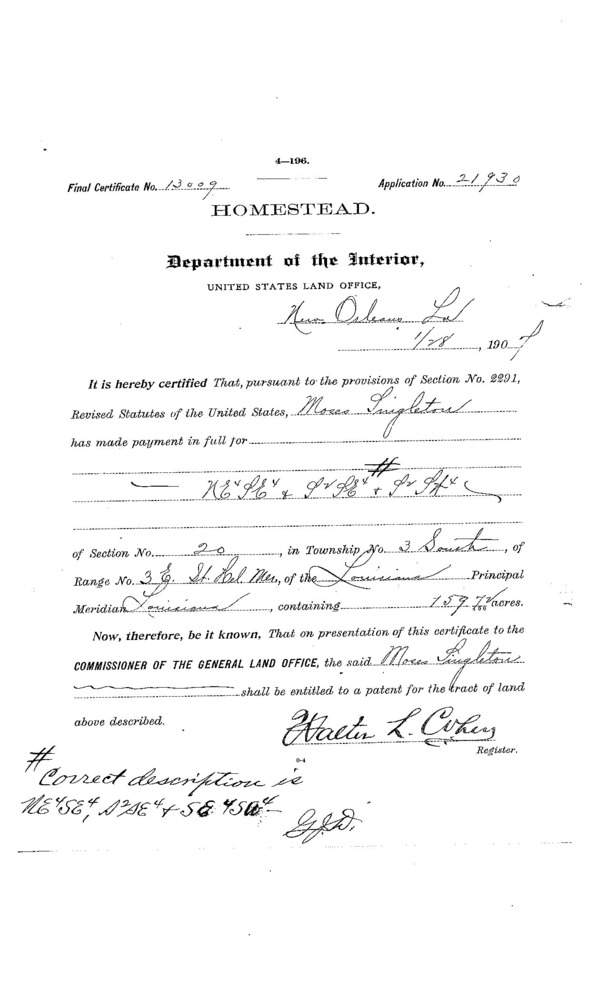 4—196.
Final Certificate No. 13009
Application No. 21930
HOMESTEAD.
Department of the Interior,
UNITED STATES LAND OFFICE,
New Orleans La
1/28, 1907
It is hereby certified That, pursuant to the provisions of Section No. 2291,
Revised Statutes of the United States, Moses Singleton
has made payment in full for
#
NE⁴SE⁴ & S²SE⁴ & S² SW⁴
of Section No. 20, in Township No. 3 South, of
Range No. 3 E. St. Hel. Mer., of the Louisiana Principal
Meridian Louisiana, containing 159 72/100 acres.
Now, therefore, be it known, That on presentation of this certificate to the
COMMISSIONER OF THE GENERAL LAND OFFICE, the said Moses Singleton
shall be entitled to a patent for the tract of land
above described.
Walter L. Cohen
Register.
9-4
# Correct description is
NE⁴SE⁴, S²SE⁴ & SE⁴SW⁴
G.J.D.